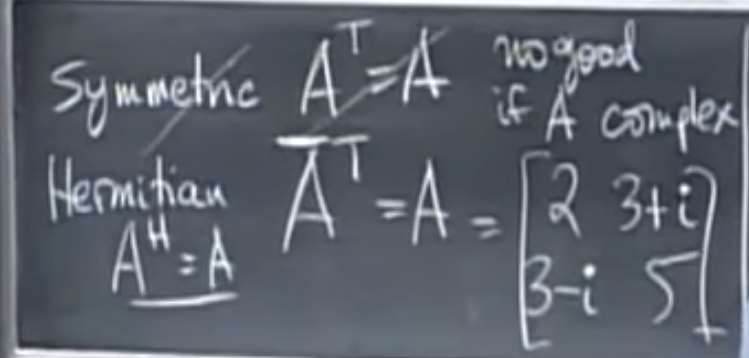 Symmetric A^T = A no good
if A complex
Hermitian A̅^T = A = [2 3+i
A^H = A 3-i 5]